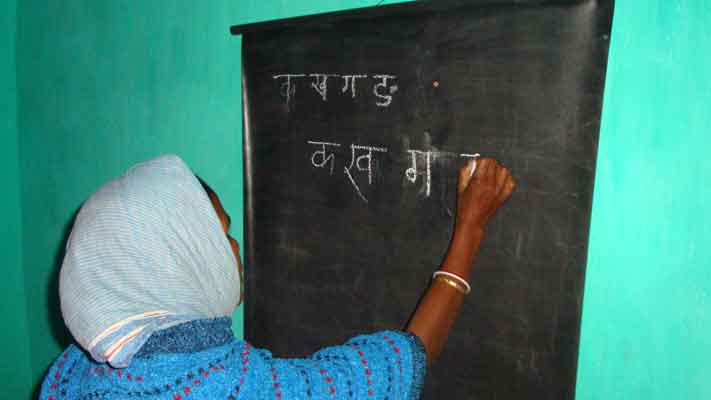 क ख ग ङ
क ख ग